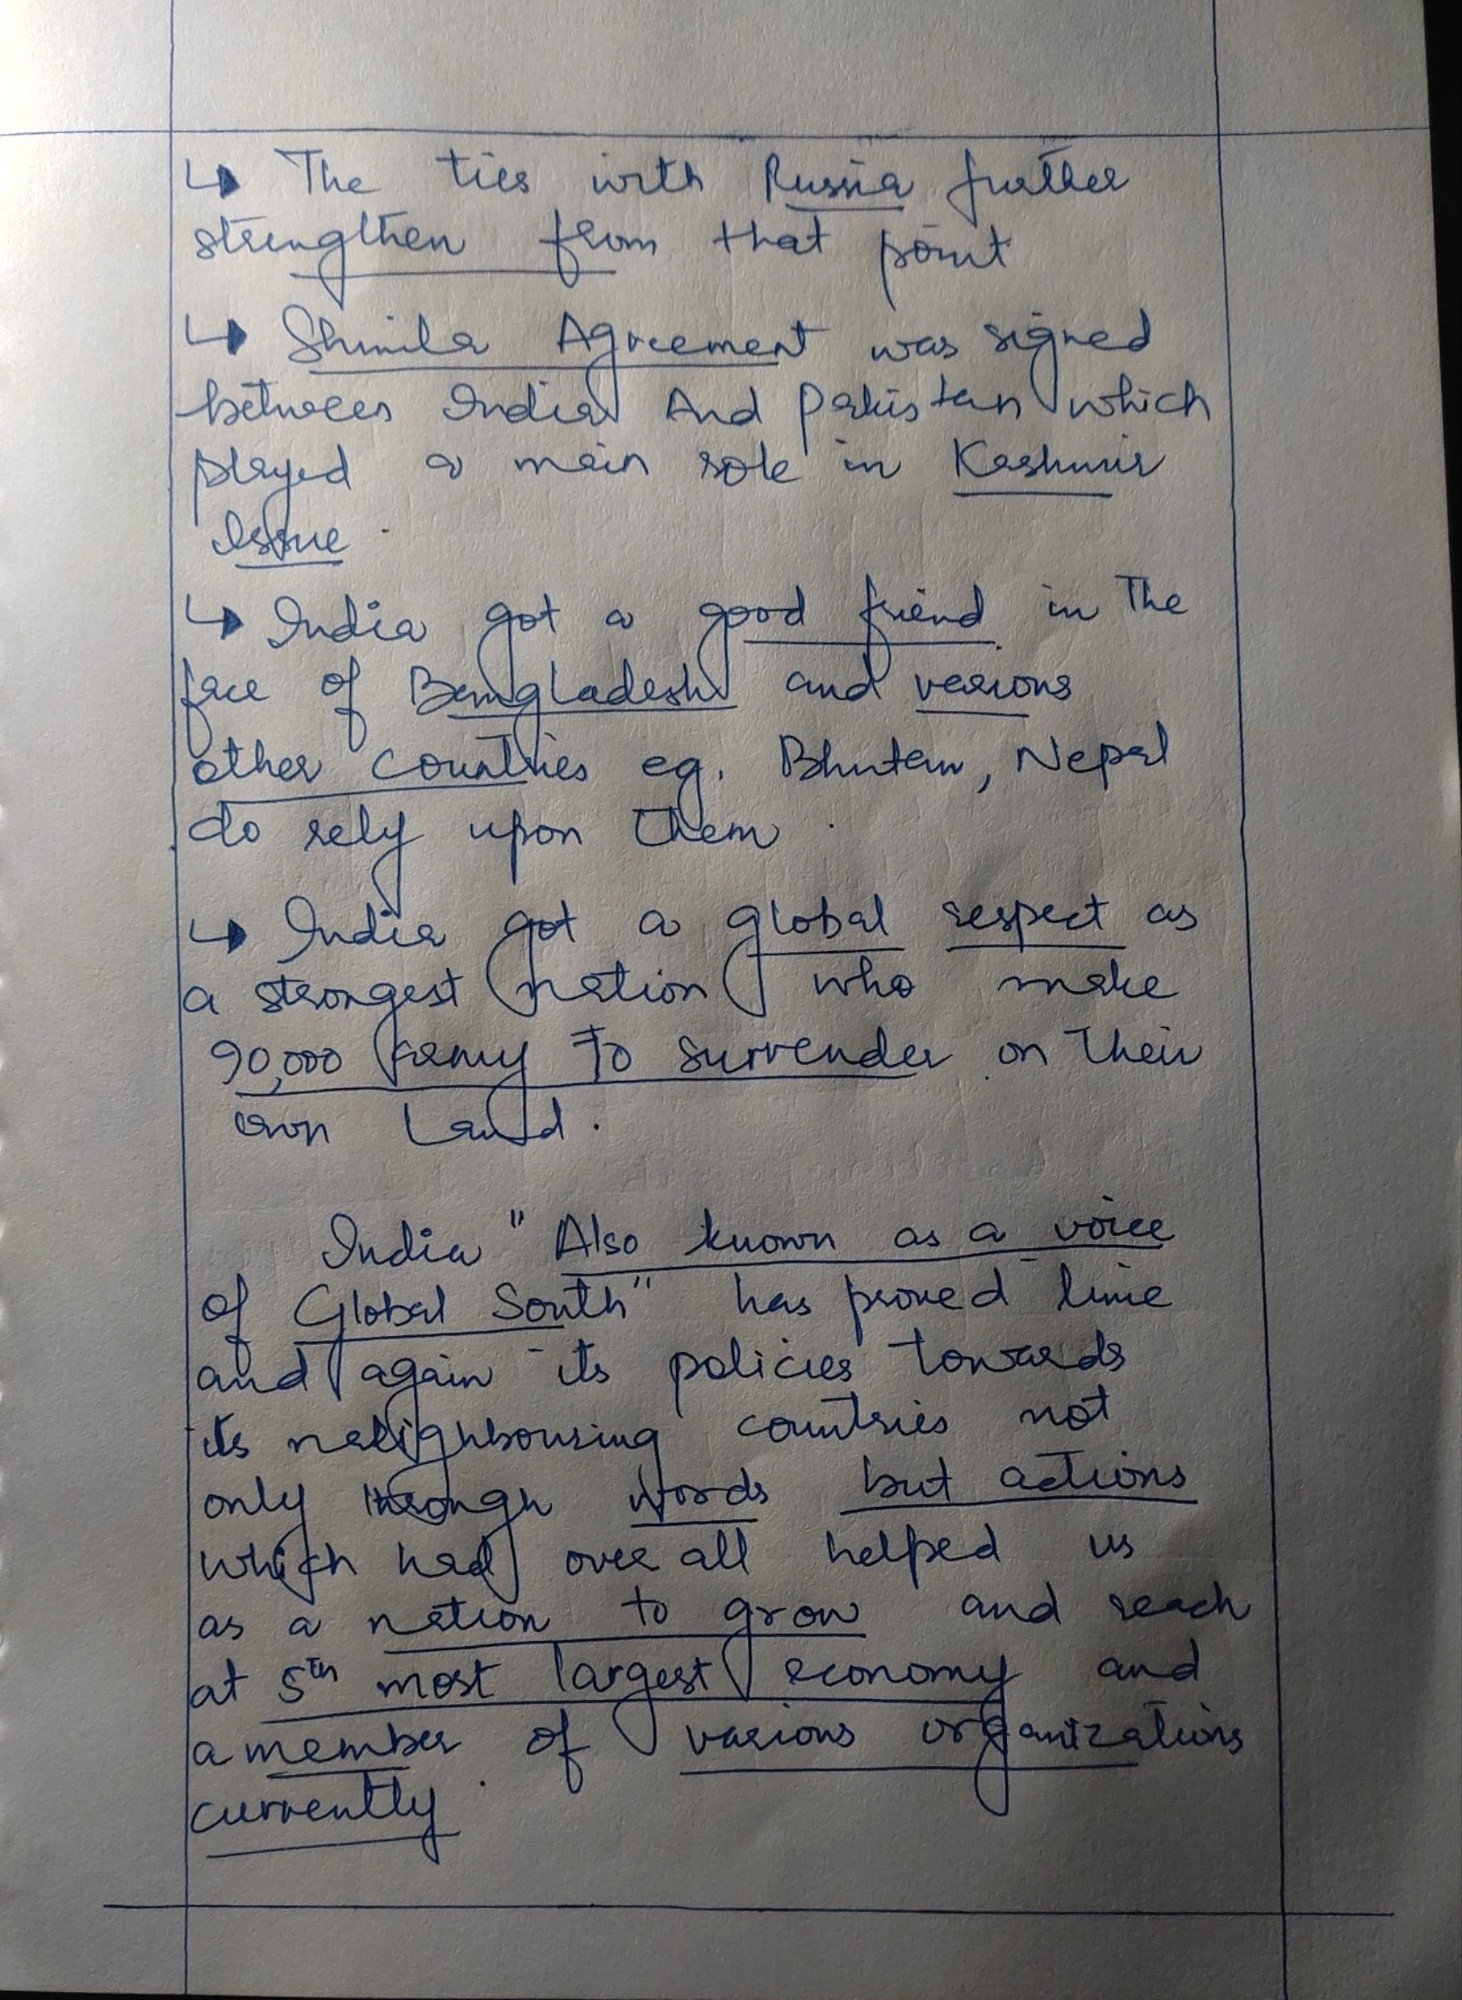 ↳ The ties with Russia further
strengthen from that point
↳ Shimla Agreement was signed
between India And Pakistan which
played a main role in Kashmir
Issue.
↳ India got a good friend in The
face of Bangladesh and various
other countries eg. Bhutan, Nepal
do rely upon them.
↳ India got a global respect as
a strongest nation who make
90,000 army to surrender on their
own Land.
India "Also known as a voice
of Global South" has proved time
and again its policies towards
its neighbouring countries not
only through words but actions
which had over all helped us
as a nation to grow and reach
at 5th most largest economy and
a member of various organizations
currently.